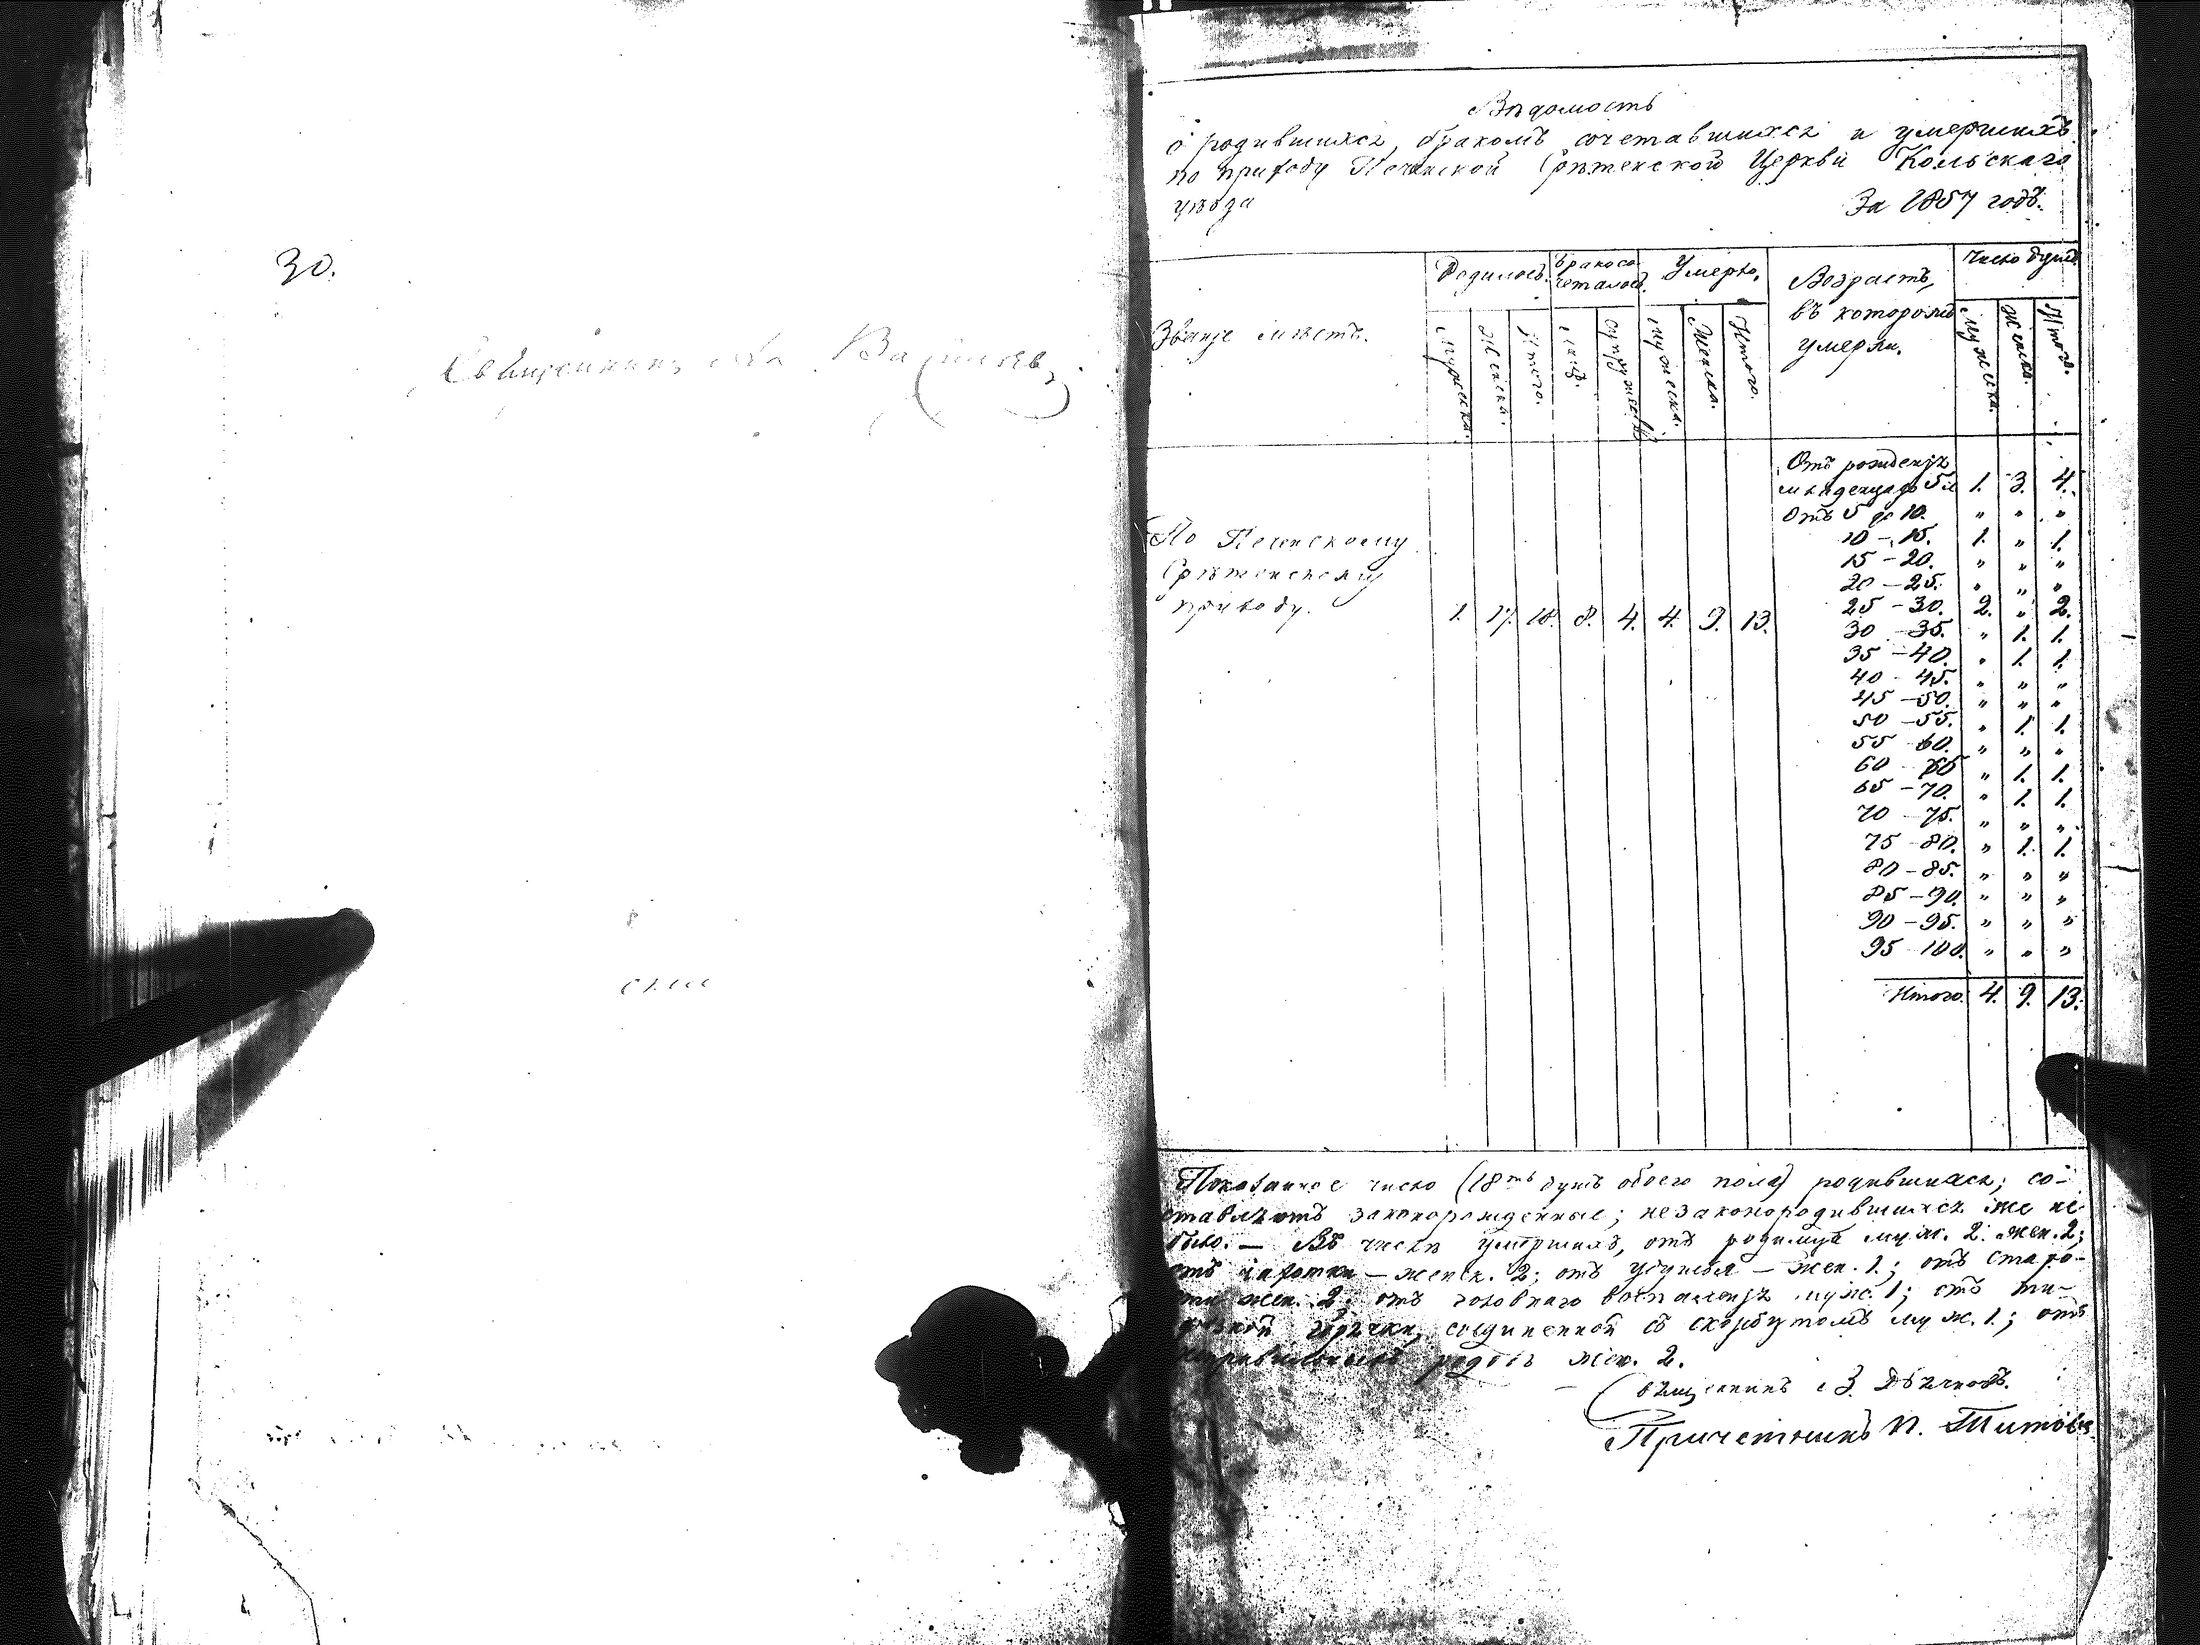 30.
Священникъ
Вѣдомость
о родившихся, бракомъ сочетавшихся и умершихъ
по приходу Печенской Срѣтенской Церкви Кольскаго
уѣзда
За 1857 годъ.
Званіе мѣстъ.
Родилось.
Бракосо-
четалось.
Умерло.
Возрастъ,
въ которомъ
умерли.
Число душъ.
Мужеска. Женска. Итого. Лицъ. Супружествъ. Мужеска. Женска. Итого. Мужеска. Женска. Итого.
По Печенскому
Срѣтенскому
приходу. 1. 17. 18. 8. 4. 4. 9. 13.
Отъ рожденія
младенца до 5и 1. 3. 4.
Отъ 5 до 10. " " "
10 - 15. 1. " 1.
15 - 20. " " "
20 - 25. " " "
25 - 30. 2. " 2.
30 - 35. " 1. 1.
35 - 40. " 1. 1.
40 - 45. " " "
45 - 50. " " "
50 - 55. " 1. 1.
55 - 60. " " "
60 - 65 " 1. 1.
65 - 70. " 1. 1.
70 - 75. " " "
75 - 80. " 1. 1.
80 - 85. " " "
85 - 90. " " "
90 - 95. " " "
95 - 100. " " "
Итого. 4. 9. 13.
Показанное число (18ть душъ обоего пола) родившихся, со-
ставляютъ законорожденные; незаконородившихся же не
было. — Въ числѣ умершихъ, отъ родимца муж. 2. жен. 2;
отъ чахотки — женск. 2; отъ удушья — жен. 1.; отъ старо-
сти жен. 2; отъ головнаго воспаленія муж. 1; отъ
горячки, соединенной съ скорбутомъ муж. 1.; отъ
родовъ жен. 2.
Священникъ Дьячковъ.
Причетникъ П. Титовъ